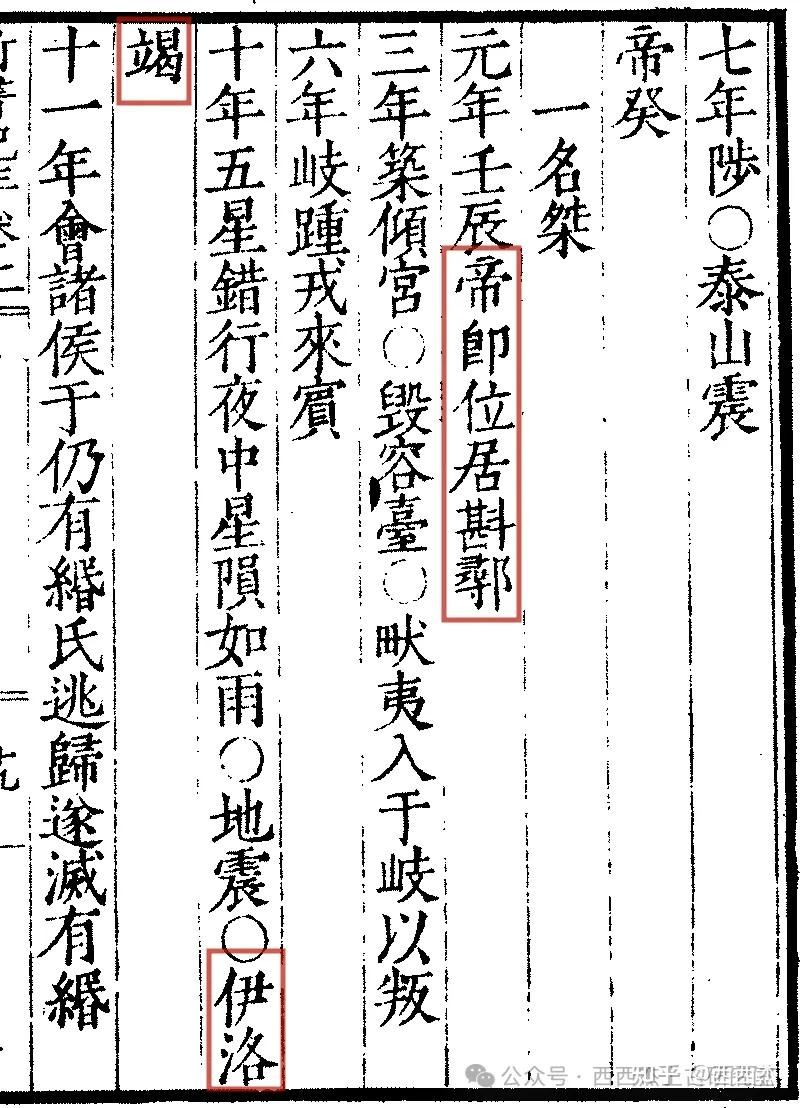 七年陟〇泰山震
帝癸
一名桀
元年壬辰帝卽位居斟鄩
三年築傾宮〇毀容臺〇畎夷入于岐以叛
六年岐踵戎來賓
十年五星錯行夜中星隕如雨〇地震〇伊洛
竭
十一年會諸侯于仍有緡氏逃歸遂滅有緡
公众号·西西
知乎